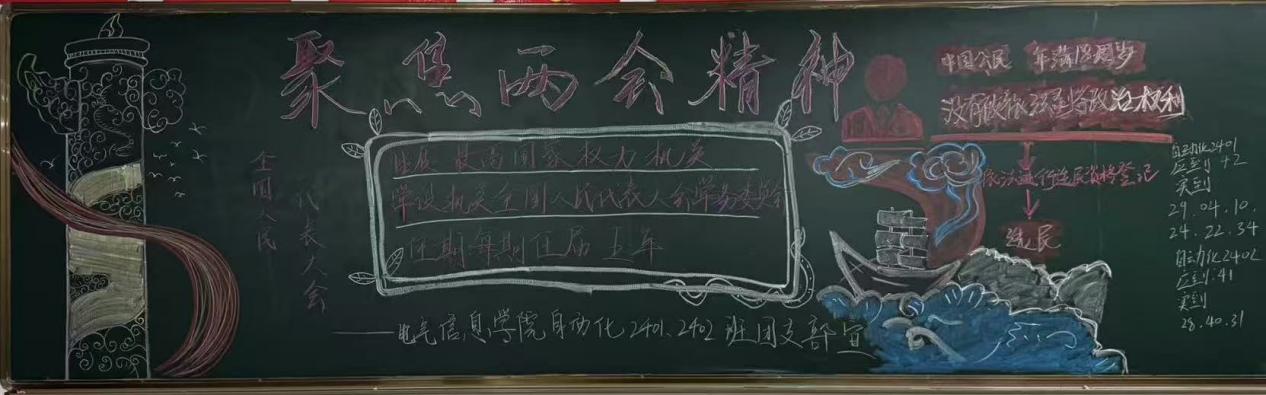 聚焦两会精神
全国人民
代表大会
性质 最高国家权力机关
常设机关全国人民代表大会常务委员会
任期每期任届五年
——电气信息学院自动化2401、2402班团支部宣
中国公民 年满18周岁
没有被依法剥夺政治权利
依法进行选民资格登记
选民
自动化2401
应到42
实到
29.04.10.
24.22.34
自动化2402
应到:41
实到
28.40.31